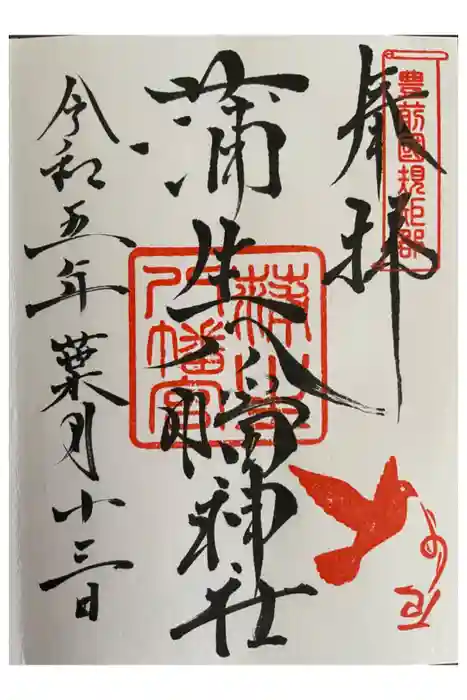 奉拝
豊前國規矩郡
蒲生八幡神社
蒲生
八幡宮
令和五年葉月廿三日